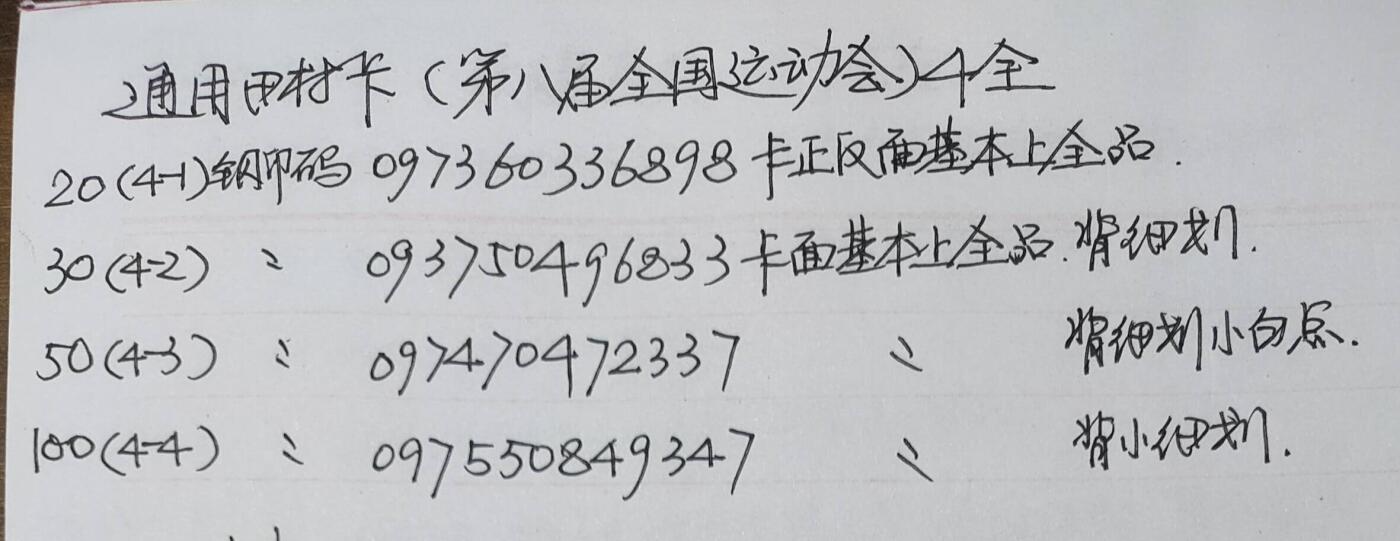 通用田村卡（第八届全国运动会）4全
20(4-1)钢印码 097360336898 卡正反面基本上全品.
30(4-2) 〃 093750496833 卡面基本上全品.背细划.
50(4-3) 〃 097470472337 〃 背细划小白点.
100(4-4) 〃 097550849347 〃 背小细划.